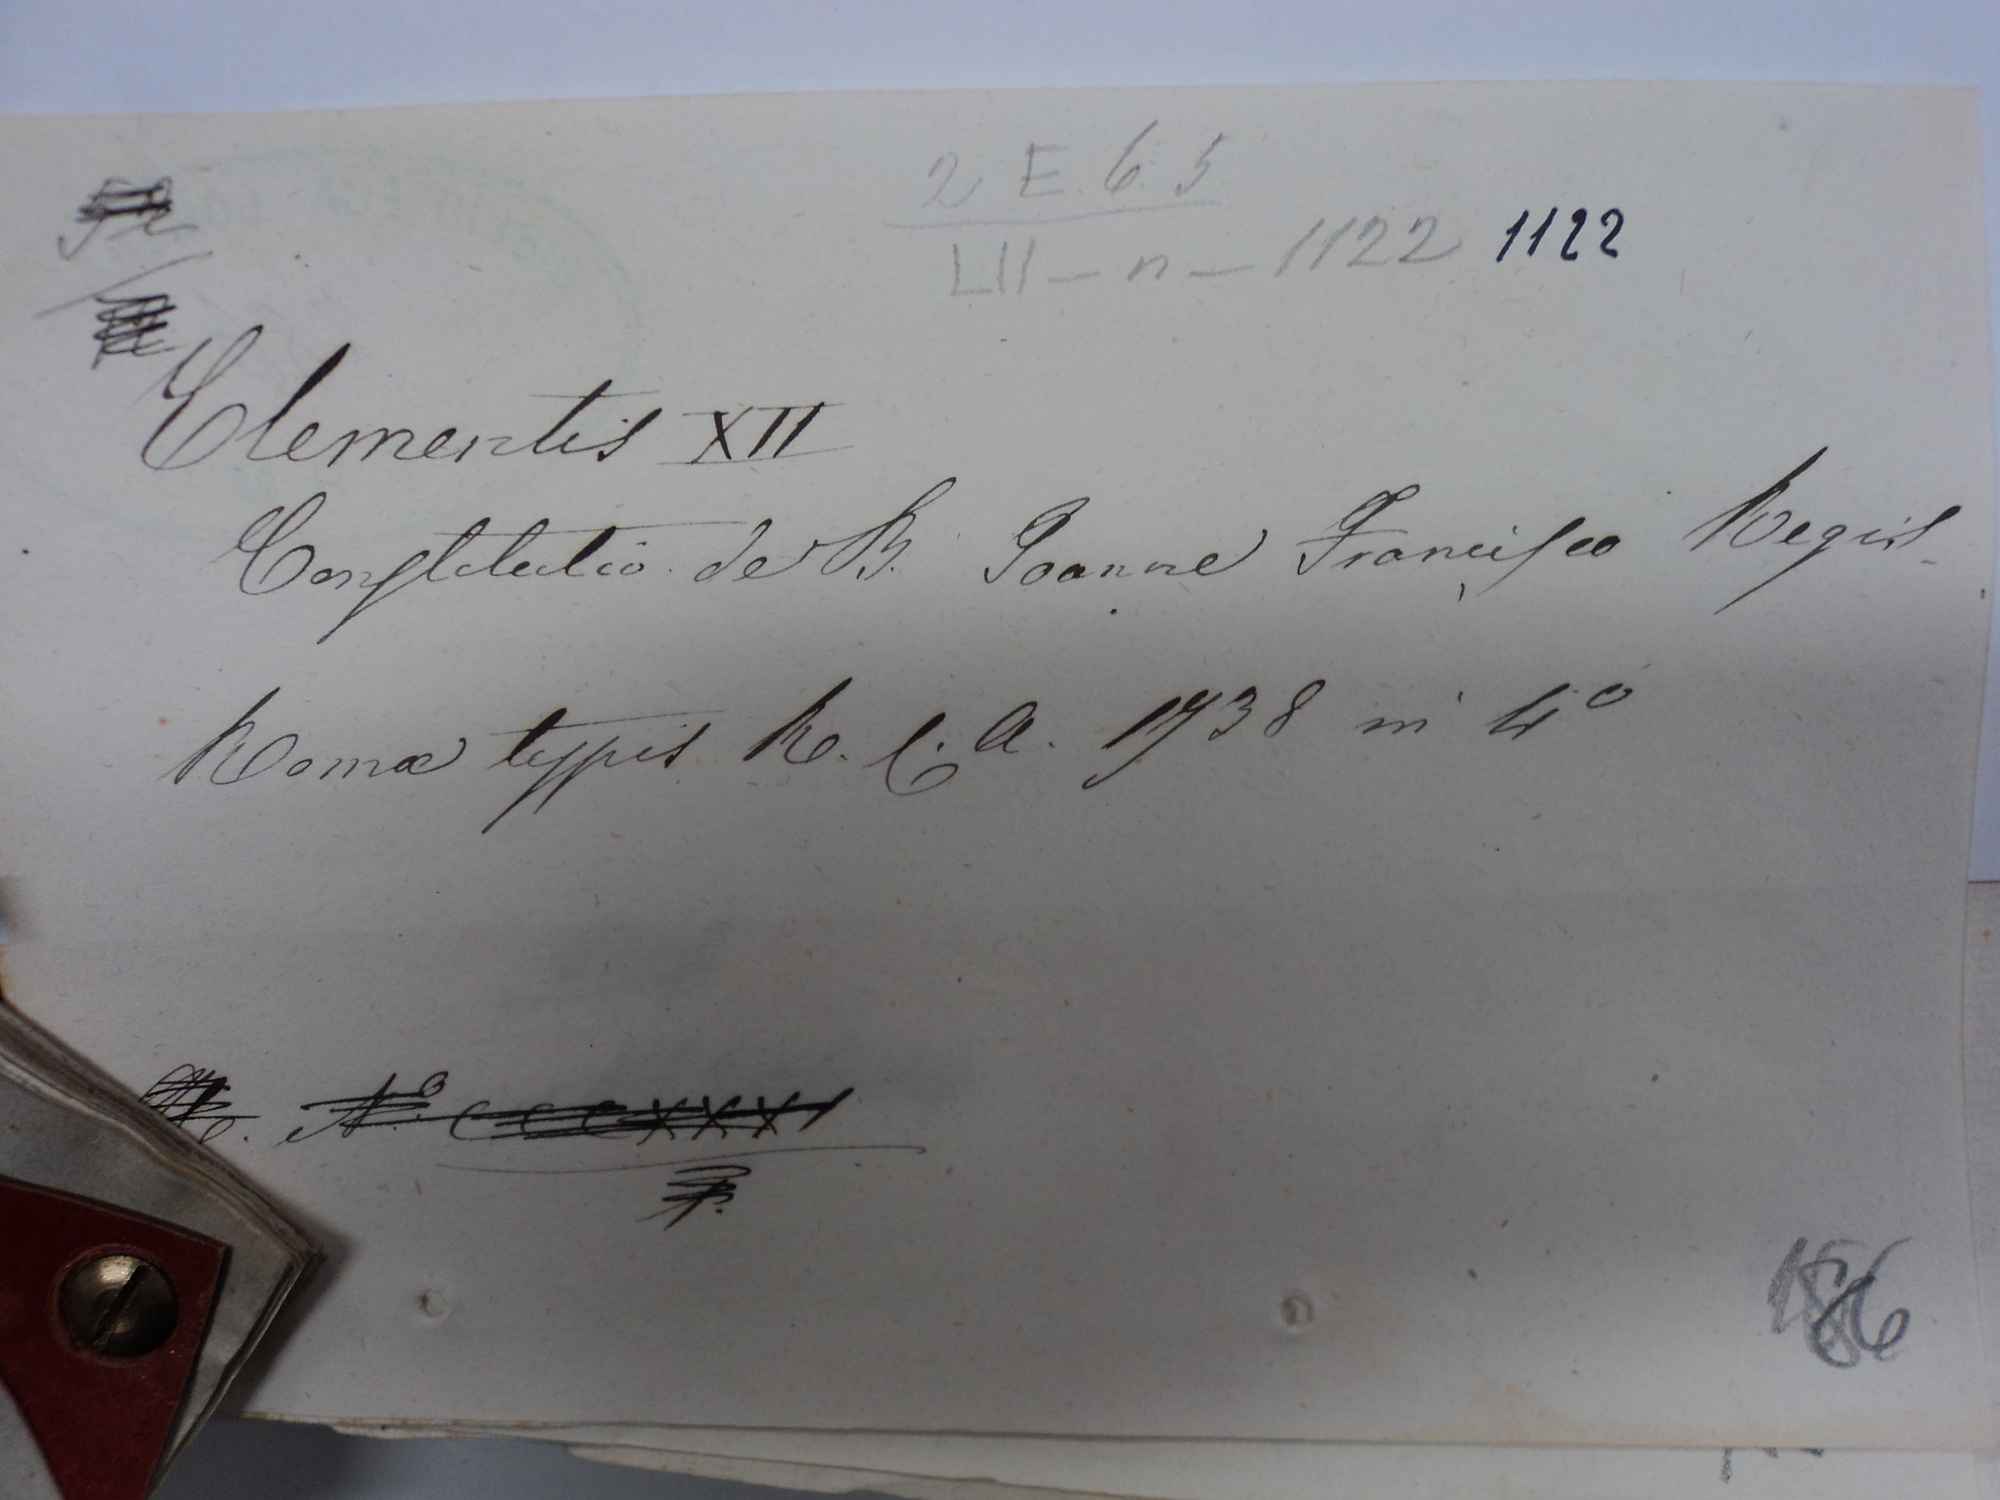 2 E. 6. 5
LII - n - 1122 1122
Clementis XII
Conſtitutio de B. Joanne Franciſco Regis
Romæ typis R. C. A. 1738 in 4º
Nº CCCXXXI
186